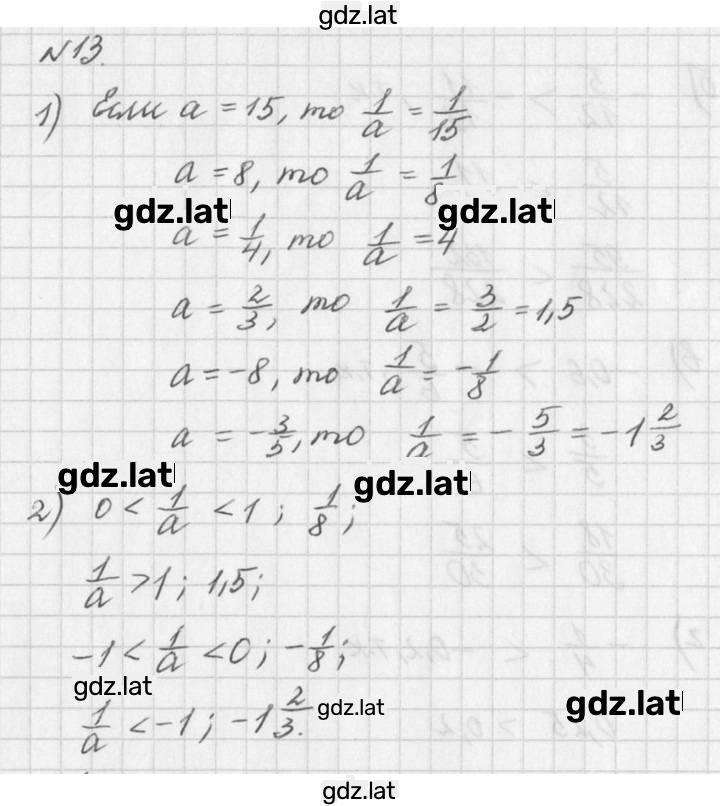 gdz.lat
№13.
1) Если a = 15, то 1/a = 1/15
a = 8, то 1/a = 1/8
gdz.lat gdz.lat
a = 1/4, то 1/a = 4
a = 2/3, то 1/a = 3/2 = 1,5
a = -8, то 1/a = -1/8
a = -3/5, то 1/a = -5/3 = -1 2/3
gdz.lat gdz.lat
2) 0 < 1/a < 1; 1/8;
1/a > 1; 1,5;
-1 < 1/a < 0; -1/8;
gdz.lat gdz.lat gdz.lat
1/a < -1; -1 2/3.
gdz.lat